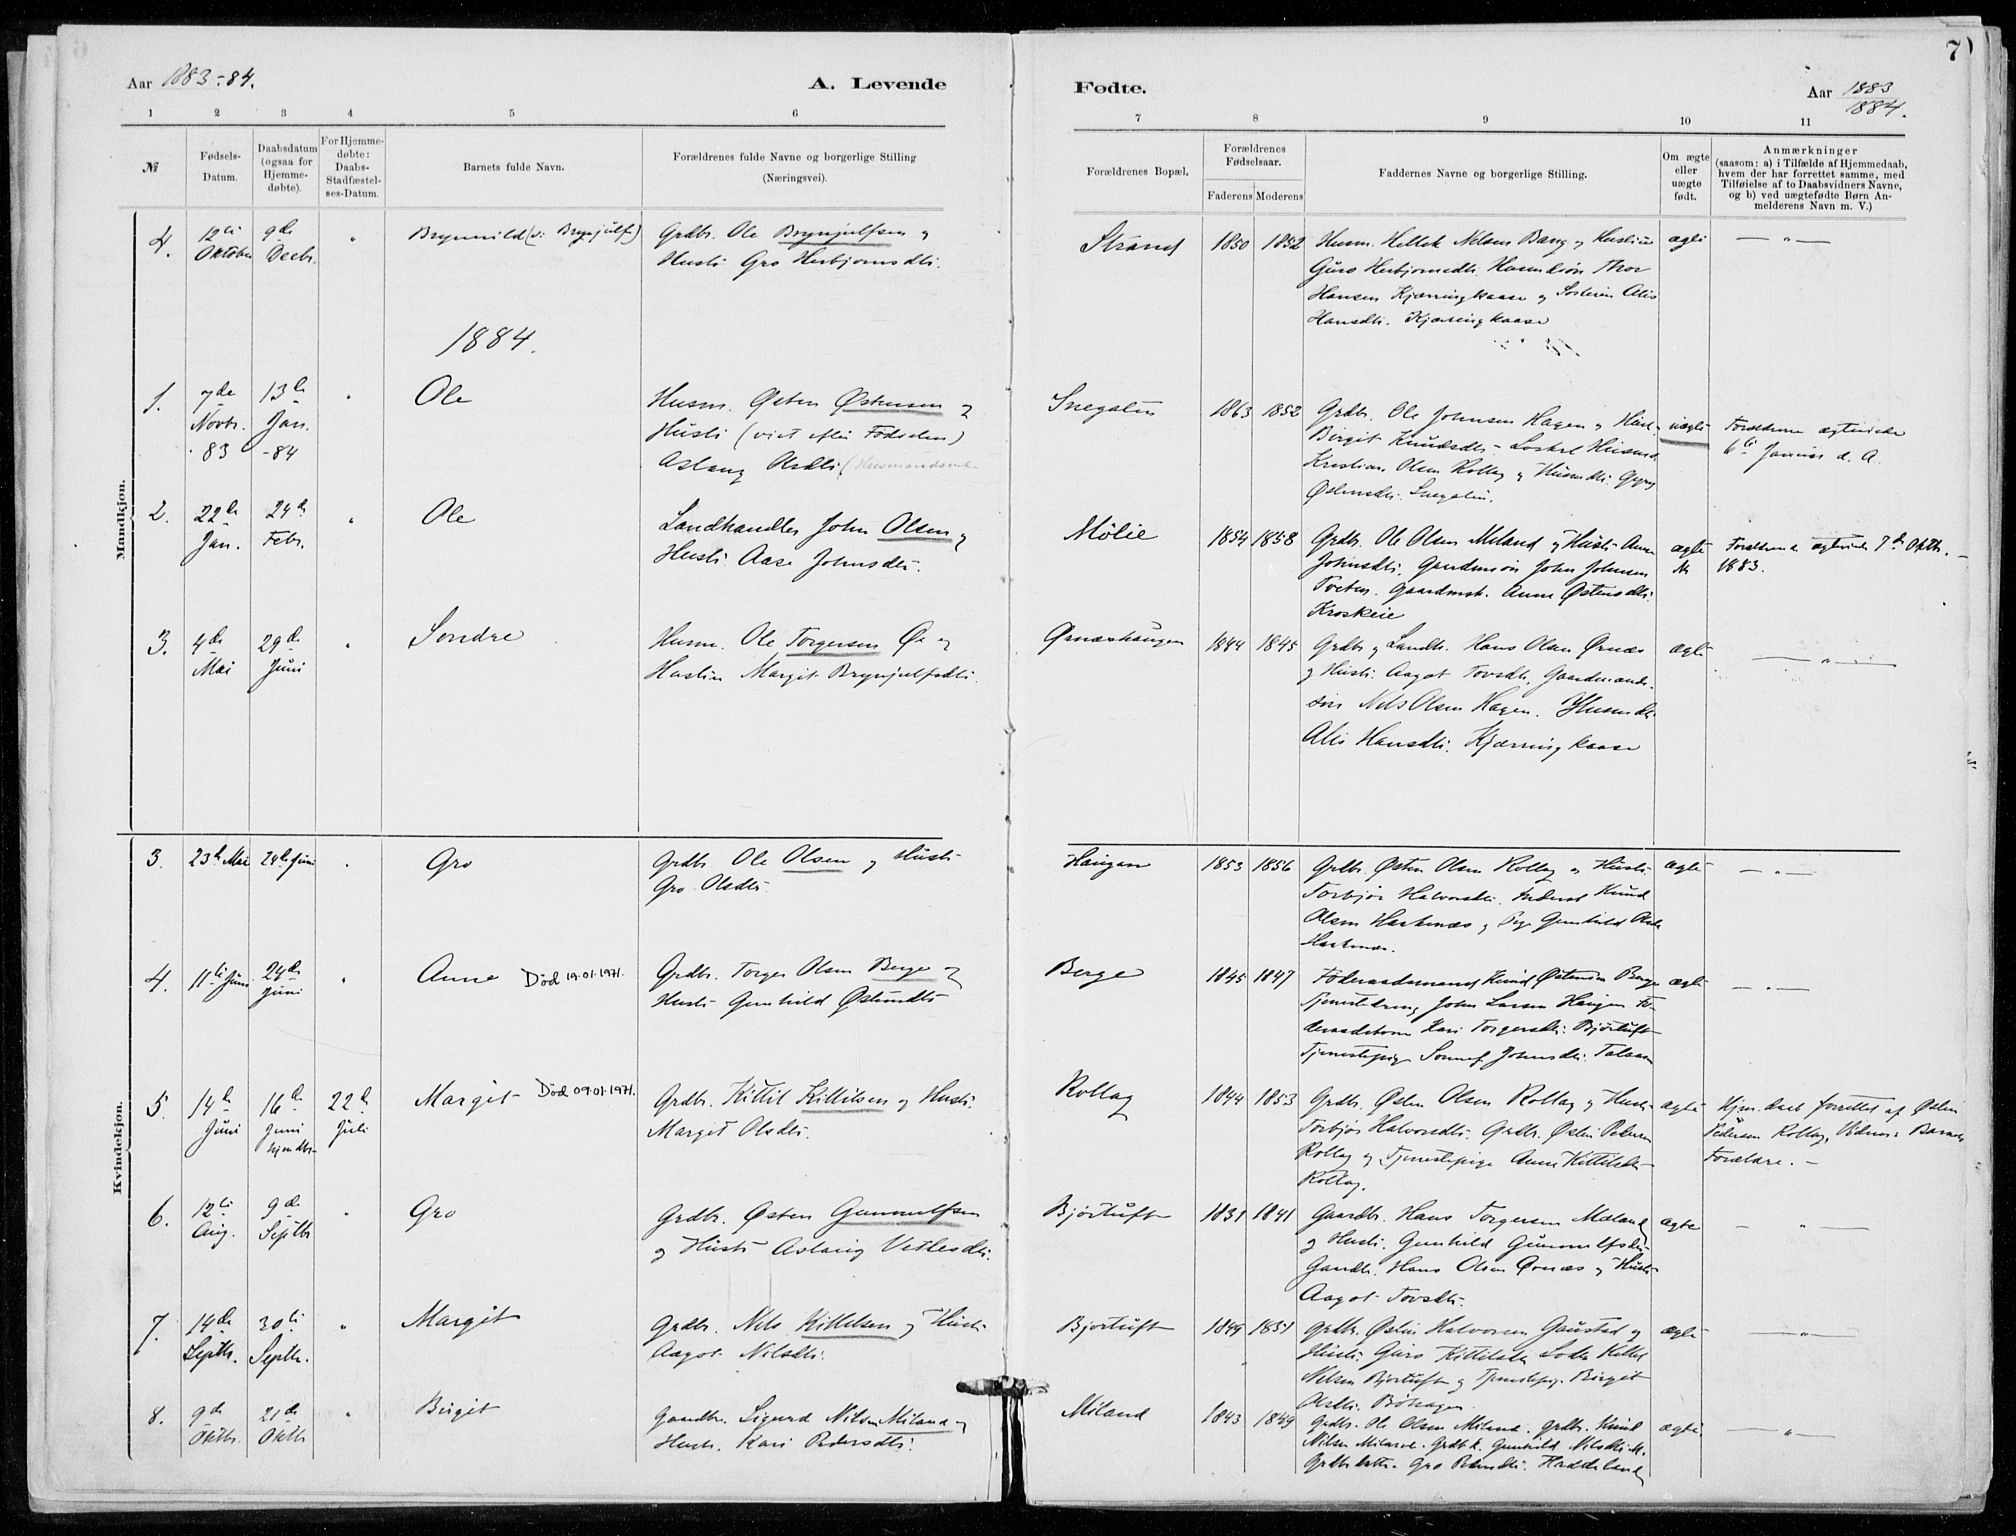 7
Aar 1883-84.
A. Levende
Fødte.
Aar 1883
1884.
1 2 3 4 5 6
7 8 9 10 11
№
Fødsels-
Datum.
Daabsdatum
(ogsaa for
Hjemme-
døbte).
For Hjemme-
døbte:
Daabs-
Stadfæstel-
ses-Datum.
Barnets fulde Navn.
Forældrenes fulde Navne og borgerlige Stilling
(Næringsvei).
Forældrenes Bopæl.
Forældrenes
Fødselsaar.
Faderens Moderens
Faddernes Navne og borgerlige Stilling.
Om ægte
eller
uægte
født.
Anmærkninger
(saasom: a) i Tilfælde af Hjemmedaab,
hvem der har forrettet samme, med
Tilføielse af to Daabsvidners Navne,
og b) ved uægtefødte Børn An-
melderens Navn m. V.)
Mandkjøn.
4.
12te
Oktober
9de
Decbr.
"
Grdbr. Ole Brynjulfsen og
Husti Gro Herbjørnsdtr.
Strand
1850 1852
Husm. Hellek Nilsen Bang og Hustru
Guro Herbjørnsdtr. Thor
Hansen Kjærringkaase og Søsteren Alis
Hansdtr. Kjærringkaase
ægte
— " —
1884.
1.
7de
Novbr.
83
13de
Jan.
-84
"
Ole
Husm. Østen Østensen og
Husti (viet efter Fødselen)
Aslaug Olsdtr
1863 1852
Grdbr. Ole Johnsen Hagen og Husti
Birgit Knudsdtr.
Kristian Olsen Rollag og Husmdtr.
Østensdtr.
uægte
Forældrene
6te Januar d. A.
2.
22de
Jan.
24de
Febr.
"
Ole
Landhandler John Olsen og
Husti Aase Johnsdtr.
Mølie
1854 1858
Grdbr. Ole Olsen Miland og Husti Anne
Johnsdtr. John Johnsen
Anne Østensdtr.
ægte
Forældrene 7de Oktbr.
1883.
3.
4de
Mai
29de
Juni
"
Søndre
Husm. Ole Torgersen Øe og
Hustru Margit Brynjulfsdtr.
Ørnæshaugen
1844 1845
Grdbr. og Landh. Hans Olsen Ørnæs
og Husti Aagot Tovsdtr. Gaardmands-
søn Nels Olsen Hagen. Husmdtr.
Alis Hansdtr. Kjærringkaase
ægte
— " —
Kvindekjøn.
3.
23de Mai
24de Juni
"
Gro
Grdbr Ole Olsen og Husti
Gro Olsdtr.
Haugan
1853 1856
Grdbr. Østen Olsen Rollag og Husti
Torbjør Halvorsdtr. Knud
Olsen Haakenæs og Pige Gunhild Olsdtr
Haakenæs.
ægte
— " —
4.
11te Juni
24de
Juni
"
Anne Død 19.01.1971.
Grdbr. Torger Olsen Berge og
Husti Gunhild Østensdtr
Berge
1845 1847
Føderaadsmand Knud Østensen Berge
Tjenestedreng John Larsen Haugen Fø-
deraadskone Kari Torgersdtr. Bjørtuft
Tjenestepige Johnsdtr.
ægte
— " —
5.
14de
Juni
16de
Juni
hjmdbt
22de
Juli
Margit Død 09.01.1971.
Grdbr. Kittil Kittilsen og Husti
Margit Olsdtr.
Rollag
1844 1853
Grdbr. Østen Olsen Rollag og Husti
Torbjør Halvorsdtr. Grdbr. Østen Pedersen
Rollag og Tjenestepige Anne Kittilsdtr
Rollag.
ægte
Hjm. daab forrettet af Østen
Pedersen Rollag, Vidner: Barnets
Forældre. -
6.
12te
Aug.
9de
Septbr
"
Gro
Grdbr. Østen Gunnulfsen
og Husti Aslaug Vetlesdtr.
Bjørtuft
1831 1841
Gaardbr. Hans Torgersen Mæland
og Husti Gunhild Gunnulfsdtr
Gaardbr. Hans Olsen Ørnæs og Husti
Aagot Tovsdtr.
ægte
— " —
7.
14de
Septbr.
30te
Septbr.
"
Margit
Grdbr. Nels Kittelsen og Husti
Aagot Nilsdtr.
Bjørtuft
1849 1851
Grdbr. Østen Halvorsen Gaustad og
Husti Guro Kittilsdtr Kittel
Nelsen Bjørtuft og Tjenestepige Birgit
Olsdtr. Bøhagen
ægte
— " —
8.
9de
Oktbr.
21de
Oktbr
"
Birgit
Gaardbr. Sigurd Nilsen Miland og
Hustr. Kari Pedersdtr.
Miland
1843 1849
Grdbr. Ole Olsen Miland. Grdbr. Knud
Nilsen Miland. Grdbk. Gunhild Nilsdtr M.
Grdbr.datter Gro Haddeland
ægte
— " —